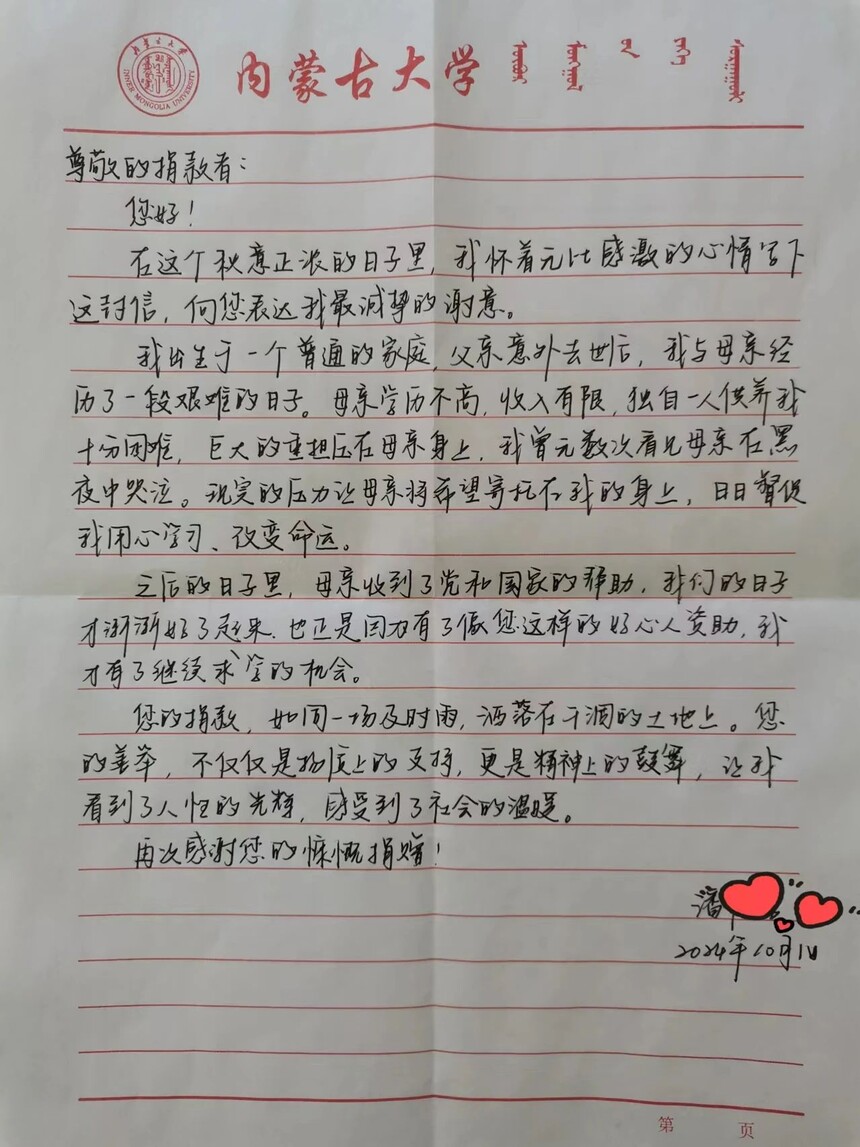 内蒙古大学
INNER MONGOLIA UNIVERSITY
尊敬的捐款者：
您好！
在这个秋意正浓的日子里，我怀着无比感激的心情写下
这封信，向您表达我最诚挚的谢意。
我出生于一个普通的家庭，父亲意外去世后，我与母亲经
历了一段艰难的日子。母亲学历不高，收入有限，独自一人供养我
十分困难，巨大的重担压在母亲身上，我曾无数次看见母亲在黑
夜中哭泣。现实的压力让母亲将希望寄托在我的身上，日日督促
我用心学习、改变命运。
之后的日子里，母亲收到了党和国家的帮助，我们的日子
才渐渐好了起来，也正是因为有了像您这样的好心人资助，我
才有了继续求学的机会。
您的捐款，如同一场及时雨，洒落在干涸的土地上。您
的善举，不仅仅是物质上的支持，更是精神上的鼓舞，让我
看到了人性的光辉，感受到了社会的温暖。
再次感谢您的慷慨捐赠！
潘
2024年10月1日
第 页